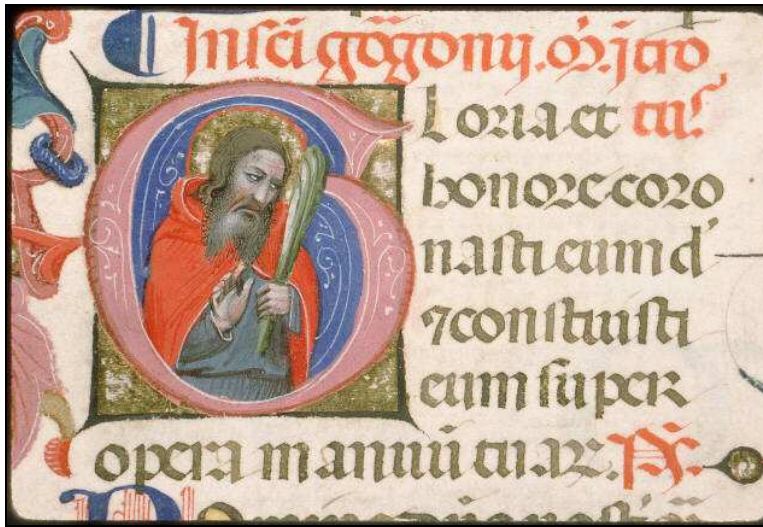 In sci gorgonij. or. itro
Gloria et tus
honore coro
nasti eum d'
⁊ constituisti
eum super
opera manuū tuaꝝ. Ps.